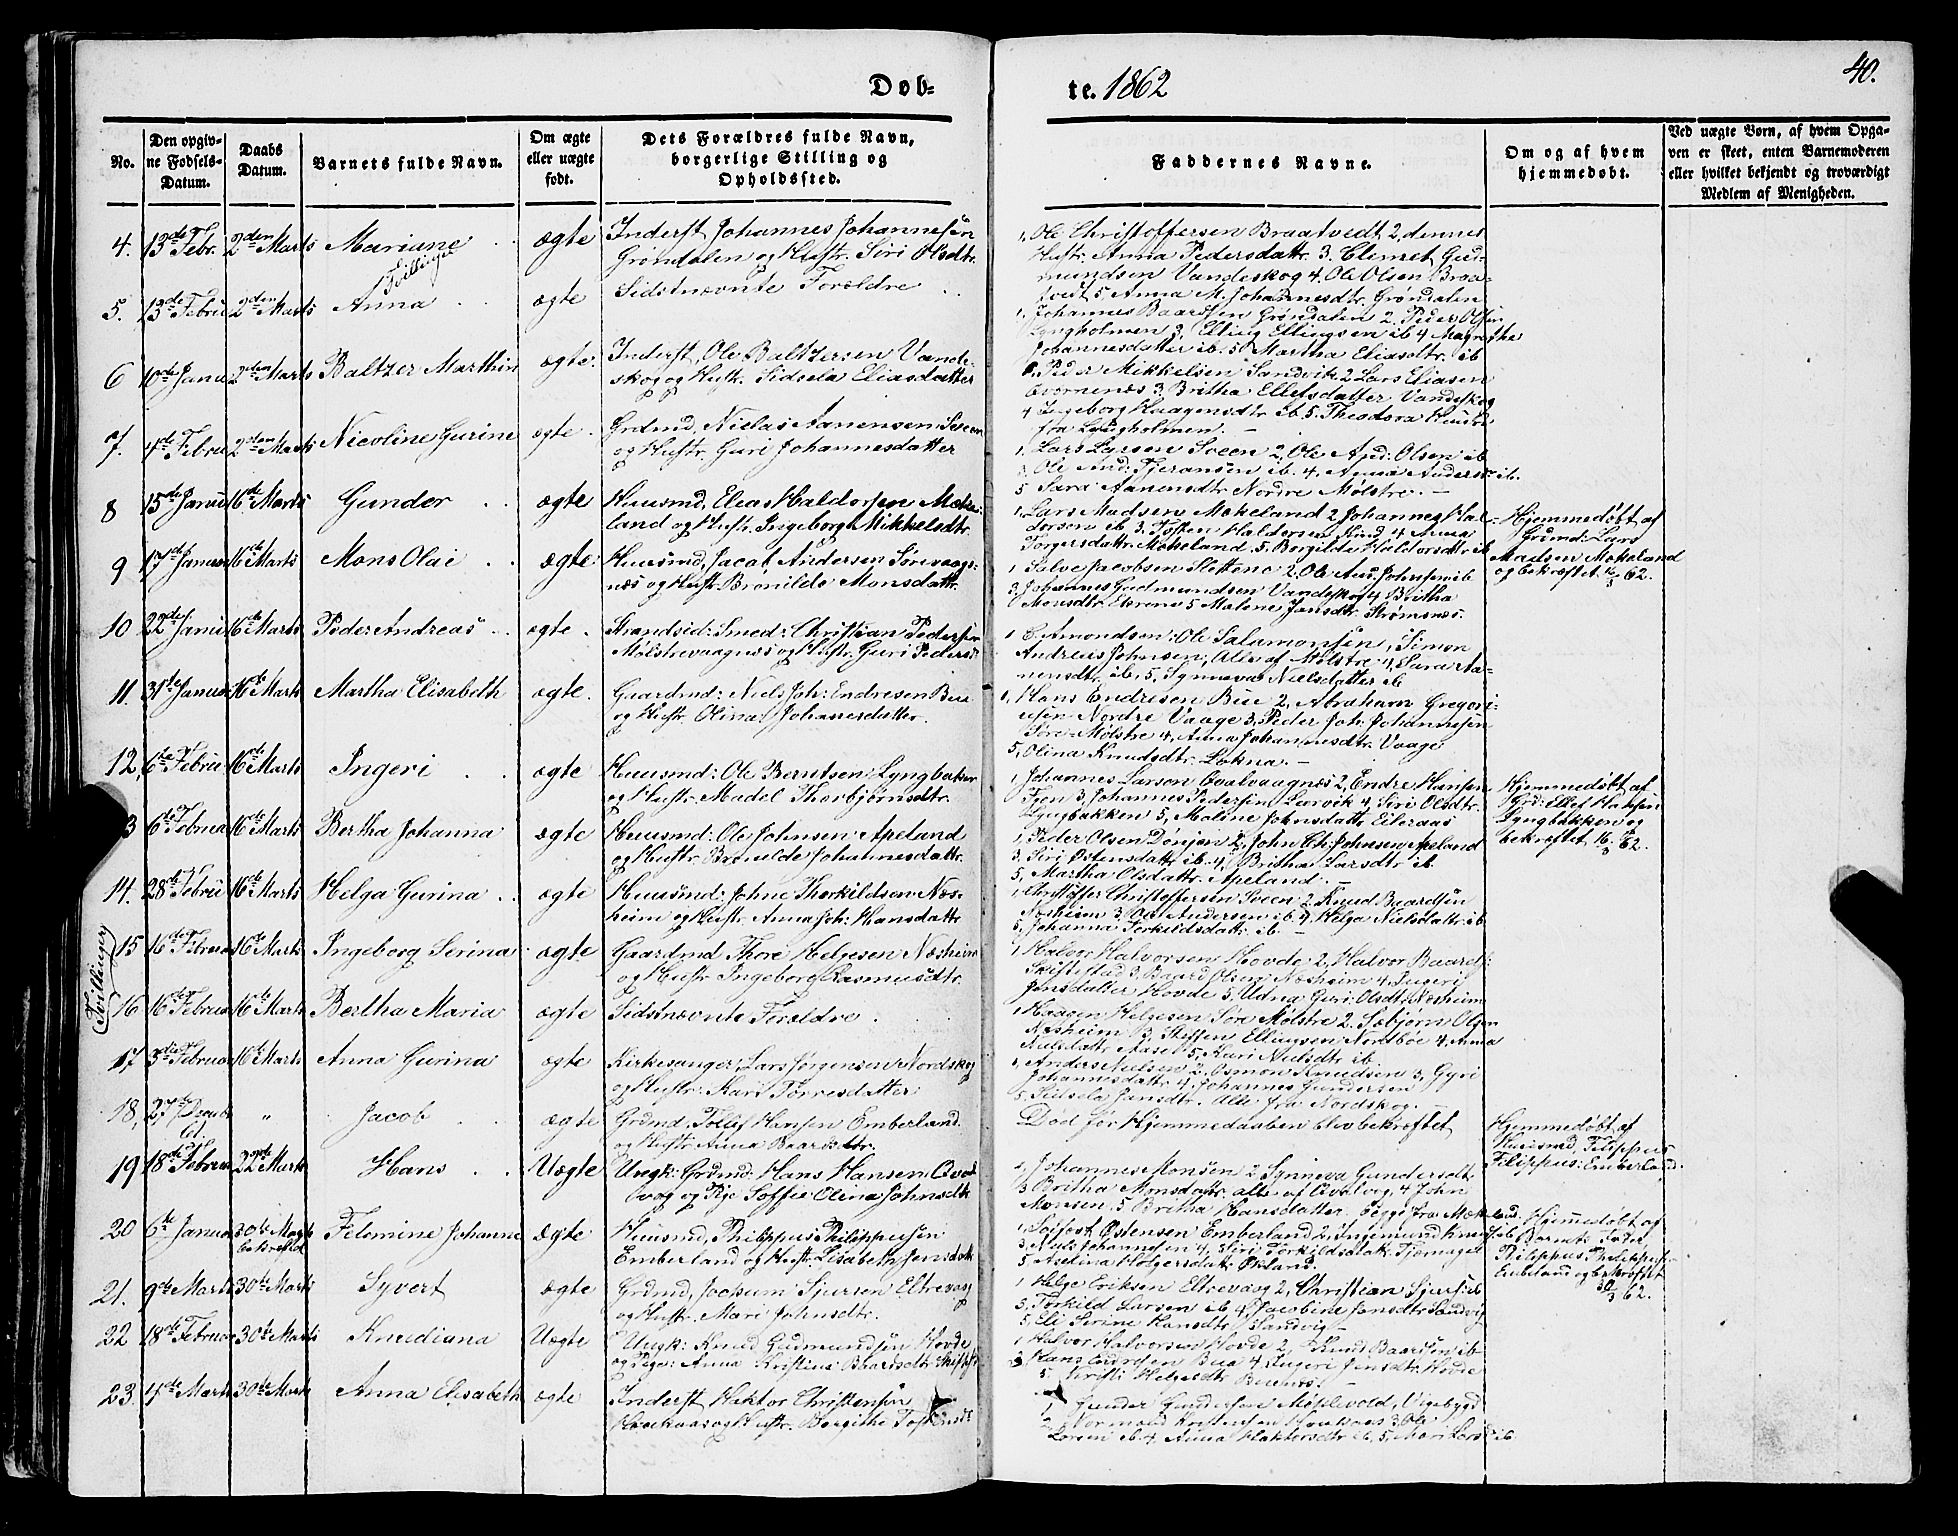 Døb-
te. 1862
40.
No.
Den opgiv-
ne Fødsels-
Datum.
Daabs
Datum.
Barnets fulde Navn.
Om ægte
eller uægte
født.
Dets Forældres fulde Navn,
borgerlige Stilling og
Opholdssted.
Faddernes Navne.
Om og af hvem
hjemmedøbt.
Ved uægte Børn, af hvem Opga-
ven er skeet, enten Barnemoderen
eller hvilket bekjendt og troværdigt
Medlem af Menigheden.
4. 13de Febr. 2den Marts Mariane ægte Inderst Johannes Johannesen
Grøndalen og Hustr. Siri Olsdtr.
1, Ole Christoffersen Braatvedt 2, dennes
Hustr. Anna Pedersdattr. 3. Clemet Gud-
mundsen Vandeskog 4. Ole Olsen Braa-
tvedt 5, Anna M. Johannesdtr. Grøndalen
Tvillinger
5. 13de Febru 2den Marts Anna ægte Sidstnævnte Forældre
1, Johannes Baardsen Grøndalen 2. Peder Olsen
Lyngholmen 3, Elling Ellingsen ib 4 Magrethe
Johannesdatter ib. 5 Martha Eliasdtr. ib
6 10de Janu 2den Marts Baltzer Marthin ægte. Inderst, Ole Baltzersen Vande-
skog og Hustr. Sidsela Eliasdatter
1. Peder Mikkelsen Sandvik 2 Lars Eliasen
3 Britha Ellefsdatter Vandeskog
4 Ingeborg Haagensdtr ib. 5. Theodora
fra Lyngholmen. —
7. 4de Febru 2den Marts Nicoline Gurine ægte. Grdmd, Nielas Aanensen Sveen
og Hustr. Guri Johannesdatter
1, Lars Larsen Sveen 2, Ole And: Olsen ib
3, Ole And: Tjeransen ib. 4, Anna Anders- ib.
5 Sara Aanensdtr Nordre Mølstre. —
8 15de Janu 16de Marts Gunder ægte Huusmd, Elias Haldorsen Møke-
land og Hustr. Ingeborg Mikkelsdtr.
1, Lars Madsen Mökeland 2 Johannes Hal-
dorsen ib 3. Tosten Haldorsen Hind, 4 Anna
Torgersdattr. Møkeland, 5. Borgilde Haldorsdtr ib
Hjemmedøbt af
Grdmd: Lars
Madsen Mökeland
og bekræftet 16/3 62.
9 17de Janua 16de Marts Mons Olai ægte Huusmd, Jacob Andersen Sørevaags-
næs og Hustr. Bronilde Monsdattr.
1 Salve Jacobsen Slettene 2. Ole And. Johnsen ib
3, Johannes Gudmundsen Vandeskog 4 Britha
Monsdtr. 5 Malene Jansdtr. Strømsnæs.
10 22de Janu 16de Marts Peder Andreas ægte. Strandsid: Smed: Christian Pedersen
Mölstrevaagnæs og Hustr. Guri Peders
1 E Amondsen: Ole Salamonsen, Simon
Andreas Johnsen, Alle af Mølstre 4, Sara Aa-
nensdtr. ib, 5, Synneva Nielsdatter ib
11. 31te Janua 16de Marts Martha Elisabeth ægte. Gaardmd: Niels Joh: Endresen Bue
og Hustr. Olina Johannesdatter.
1, Hans Endresen Bue 2, Abraham Gregori-
usen Nordre Vaage 3, Peder Joh: Johannesen
Søre Mølstre 4, Anna Johannesdtr. Vaage
5, Olina Knudsdtr. Løkna. —
12, 6te Febru 16de Marts Ingeri ægte Huusmd: Ole Berntsen: Lyngbaken
og Hustr. Madel Thorbjørnsdtr.
1, Johannes Larsen Qvalvaagnæs 2, Endre Hansen
Tjen 3, Johannes Pedersen Larvik 4, Siri Olsdtr.
Lyngbakken 5, Maline Johnsdattr Eileraas
Hjemmedøbt af
Grd: Ellef Hansen
Lyngbakken og
bekræftet 16/3 62.
3 6te Februa 16de Marts Bertha Johanna ægte Huusmd: Ole Johnsen Apeland
og Hustr. Bronilde Johannesdattr.
1, Peder Olsen Dønjen 2, John Ch: Johnsen Apeland
3, Siri Østensdattr ib. 4, Britha Larsdtr ib.
5, Martha Olsdattr. Apeland. —
14. 28de Febru 16de Marts Helga Gurina ægte Huusmd: Johne Thorkildsen Næs-
heim og Hustr. Anna Joh: Hansdattr.
1, Christoffer Christoffersen Sveen 2, Knud Baardsen
Næsheim 3, Ole Andersen ib. 4, Helga Nielsdattr. ib
5, Johanna Torkildsdattr. ib. —
Tvillinger
15 16de Februa 16de Marts Ingeborg Serina ægte Gaardmd Thore Helgesen Næsheim
og Hustr. Ingeborg Rasmusdtr.
1, Halvor Halvorsen Hovde 2, Halvor Baards-
Skiftestad 3, Baard Olsen Næsheim 4, Ingeri
Jonsdatter Hovde 5, Udna Guri: Olsdt: Næsheim
16 16de Februa 16de Marts Bertha Maria ægte Sidstnævnte Forældre.
1, Haagen Helgesen Søre Mølstre 2. Sæbjørn Olsen
Næsheim 3, Steffen Ellingsen Nordbøe 4, Anna
Nielsdattr Aase 5, Kari Nielsdtr. ib.
17, 3die Februar 16de Marts Anna Gurina ægte Kirkesanger, Lars Jørgensen Nordskog
og Hustr: Kari Torresdatter
1, Anders Nielsen 2, Osmon Knudsen 3, Gyri
Johannesdattr. 4, Johannes Gundersen
5, Sidsela Jansdtr. Alle fra Nordskog. —
18, 27de Decemb 61. „ Jacob ægte Grdmd, Tollef Hansen Emberland.
og Hustr. Anna Baardsdtr.
Død før Hjemmedaaben blev bekræftet
Hjemmedøbt af
Huusmd, Filippus
Filippus: Emberland.
19 18de Februa 22de Marts Hans Uægte Ungk: Grdmd: Hans Hansen Qval-
vaag og Pige Soffie Olina Johnsdtr.
1, Johannes Monsen 2, Synneva Gundersdtr
3 Britha Monsdattr. alle af Qvalvåg, 4 John
Monsen, 5 Britha Hansdatter, begge fra Møkeland.
20 6te Janua 30te Marts bekræftet Felomine Johanne Ægte Huusmd, Philippus Philippusen
Emberland og Hustr. Lisabeth Jensdtr
1, Tosfost Østensen Emberland 2, Ingemund Knuds- ib.
3, Niels Johannesen 4, Siri Torkildsdattr. Tjernagel
5, Aselina Holgersdattr Økland.
Hjemmedøbt af
Barnets Fader
Philippus Philippusen
Emberland og bekræftet
30/3 62.
21. 9de Marts 30te Marts Syvert ægte Grdmd, Jochum Sjursen Eltrevaag
og Hustr. Mari Johnsdtr.
1, Helge Eriksen Eltrevaag 2, Christian Sjurs- ib
3, Torkild Larsen ib 4, Jacobine Jansdtr Sandvig
5, Eli Serine Hansdtr. Sandvig —
22 18de Februa 30te Marts Knudiana Uægte Ungk: Knud Gudmundsen Hovde
og Pige: Anna Kristine Baardsdtr. Skiftest
1, Halvor Halvorsen Hovde 2, Knud Baardsen ib
3, Hans Endresen Bua 4, Ingeri Jensdtr. Hovde
5. Kirsti Helgesdtr
23. 4de Marts 30te Marts Anna Elisabeth ægte Inderst Haktor Christensen
og Hustr. Borgithe Tostensdt
1, Gunder Gundersen Møklevold, Vigebygd
2, Normand Kristensen 3. Ole
Larsen ib. 4, Anna Haktorsdtr ib, 5, Mari Lars- ib.